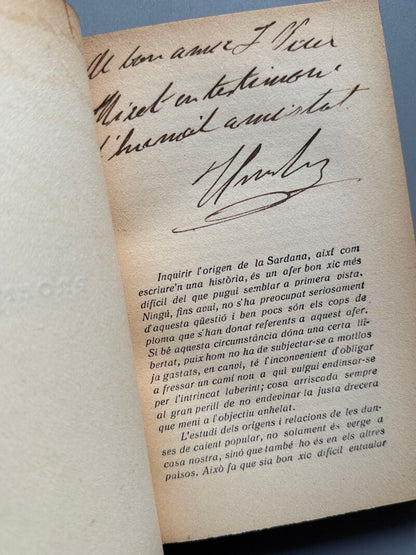 Al bon amic J. Vives
Miret en testimoni
d'inmoió amistat
Inquirir l'origen de la Sardana, així com
escriure'n una història, és un afer bon xic més
difícil del que pugui semblar a primera vista.
Ningú, fins avui, no s'ha preocupat seriosament
d'aquesta qüestió i ben pocs són els cops de
ploma que s'han donat referents a aquest afer.
Si bé aquesta circumstància dóna una certa lli-
bertat, puix hom no ha de subjectar-se a motllos
ja gastats, en canvi, té l'inconvenient d'obligar
a fressar un camí non a qui vulgui endinsar-se
per l'intrincat laberint; cosa arriscada sempre
al gran perill de no endevinar la justa drecera
que meni a l'objectiu anhelat.
L'estudi dels orígens i relacions de les dan-
ses de caient popular, no solament és verge a
casa nostra, sinó que també ho és en els altres
països. Això fa que sia bon xic difícil entaular